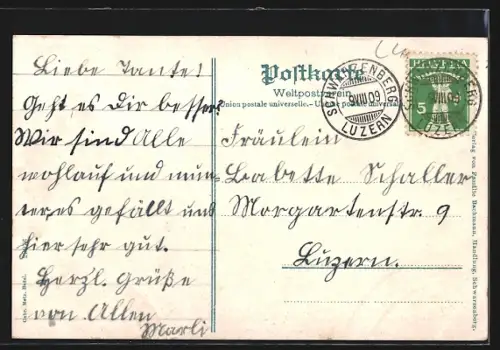 Liebe Tante!
Geht es Dir besser?
Wir sind Alle
wohlauf und mun-
ter, es gefällt uns
hier sehr gut.
Herzl. Grüße
von Allen
Marli
Postkarte
Weltpostverein
Union postale universelle. - postale universelle
SCHWARZENBERG
VIII 09
LUZERN
HELVETIA
5
Fräulein
Babette Schaller
Morgartenstr. 9
Luzern.
Verlag von Bachmann, Handlung, Schwarzenberg.
Gebr. Metz, Basel.